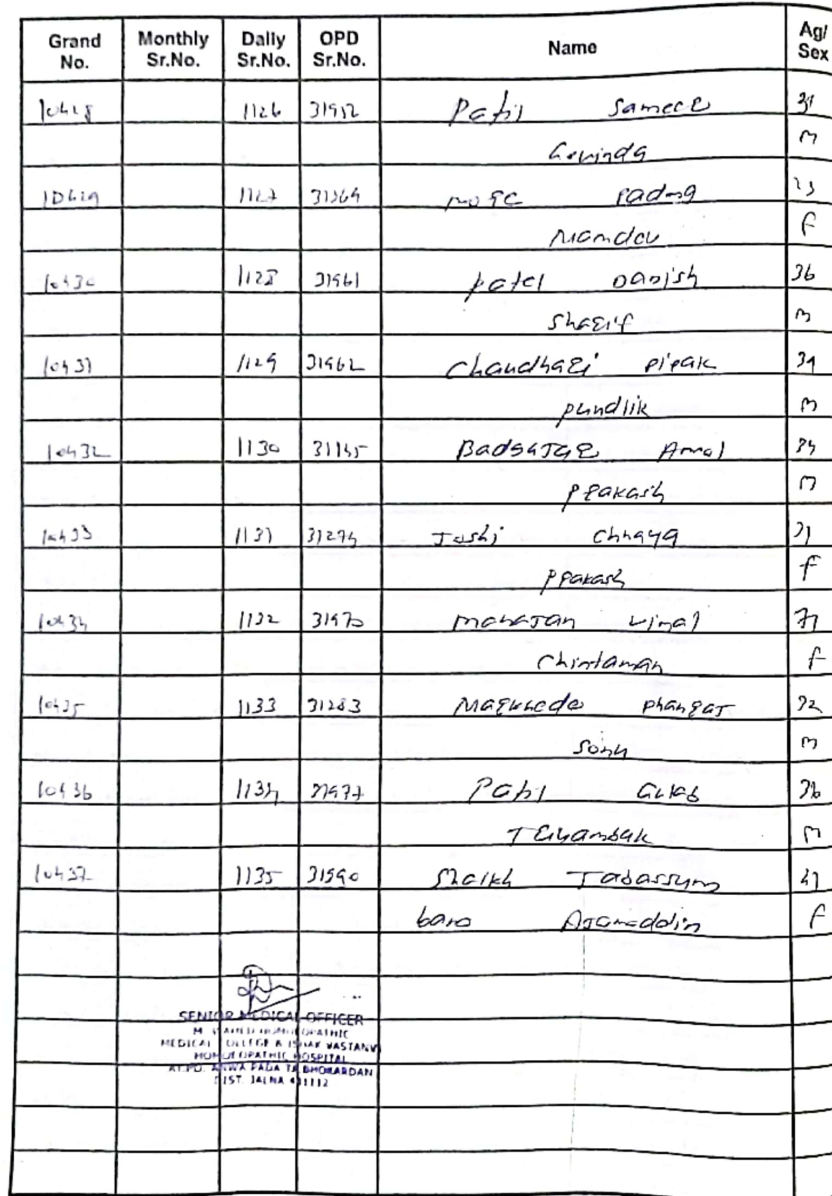 Grand No. Monthly Sr.No. Daily Sr.No. OPD Sr.No. Name Ag/ Sex
10428 1126 31952 Patil Sameer 31
Govinda M
10429 1127 31364 more 23
Namdev F
10430 1128 31961 patel Danish 36
Sharif M
10431 1129 31962 Chaudhari Dipak 39
pundlik M
10432 1130 31145 Amol 34
Prakash M
10433 1131 31274 Joshi Chhaya 31
Prakash F
10434 1132 31970 mahajan vimal 71
Chintaman F
10435 1133 31283 32
Sonu M
10436 1134 31977 Patil Gulab 36
M
10437 1135 31990 Shaikh Tabassum 41
bano F
SENIOR MEDICAL OFFICER
MEDICAL COLLEGE &
HOMOEOPATHIC HOSPITAL
AT.PO. ANWA PADA TA BHOKARDAN
DIST. JALNA 431112